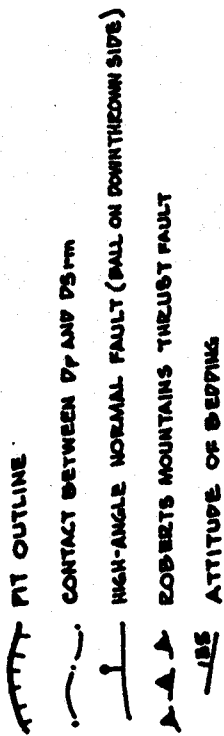 PIT OUTLINE
CONTACT BETWEEN Dp AND DSrm
HIGH-ANGLE NORMAL FAULT (BALL ON DOWNTHROWN SIDE)
ROBERTS MOUNTAINS THRUST FAULT
ATTITUDE OF BEDDING